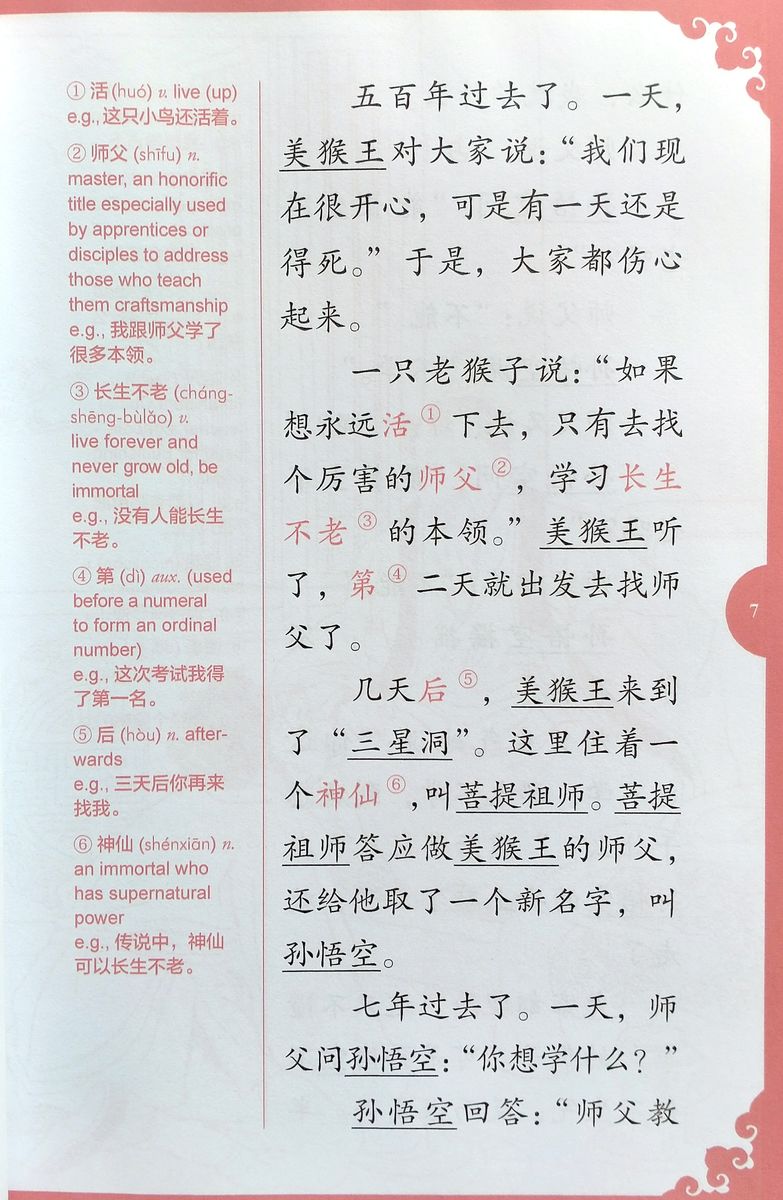 ① 活 (huó) v. live (up)
e.g., 这只小鸟还活着。
② 师父 (shīfu) n.
master, an honorific
title especially used
by apprentices or
disciples to address
those who teach
them craftsmanship
e.g., 我跟师父学了
很多本领。
③ 长生不老 (cháng-
shēng-bùlǎo) v.
live forever and
never grow old, be
immortal
e.g., 没有人能长生
不老。
④ 第 (dì) aux. (used
before a numeral
to form an ordinal
number)
e.g., 这次考试我得
了第一名。
⑤ 后 (hòu) n. after-
wards
e.g., 三天后你再来
找我。
⑥ 神仙 (shénxiān) n.
an immortal who
has supernatural
power
e.g., 传说中，神仙
可以长生不老。
五百年过去了。一天，
美猴王对大家说：“我们现
在很开心，可是有一天还是
得死。”于是，大家都伤心
起来。
一只老猴子说：“如果
想永远活①下去，只有去找
个厉害的师父②，学习长生
不老③的本领。”美猴王听
了，第④二天就出发去找师
父了。
几天后⑤，美猴王来到
了“三星洞”。这里住着一
个神仙⑥，叫菩提祖师。菩提
祖师答应做美猴王的师父，
还给他取了一个新名字，叫
孙悟空。
七年过去了。一天，师
父问孙悟空：“你想学什么？”
孙悟空回答：“师父教
7